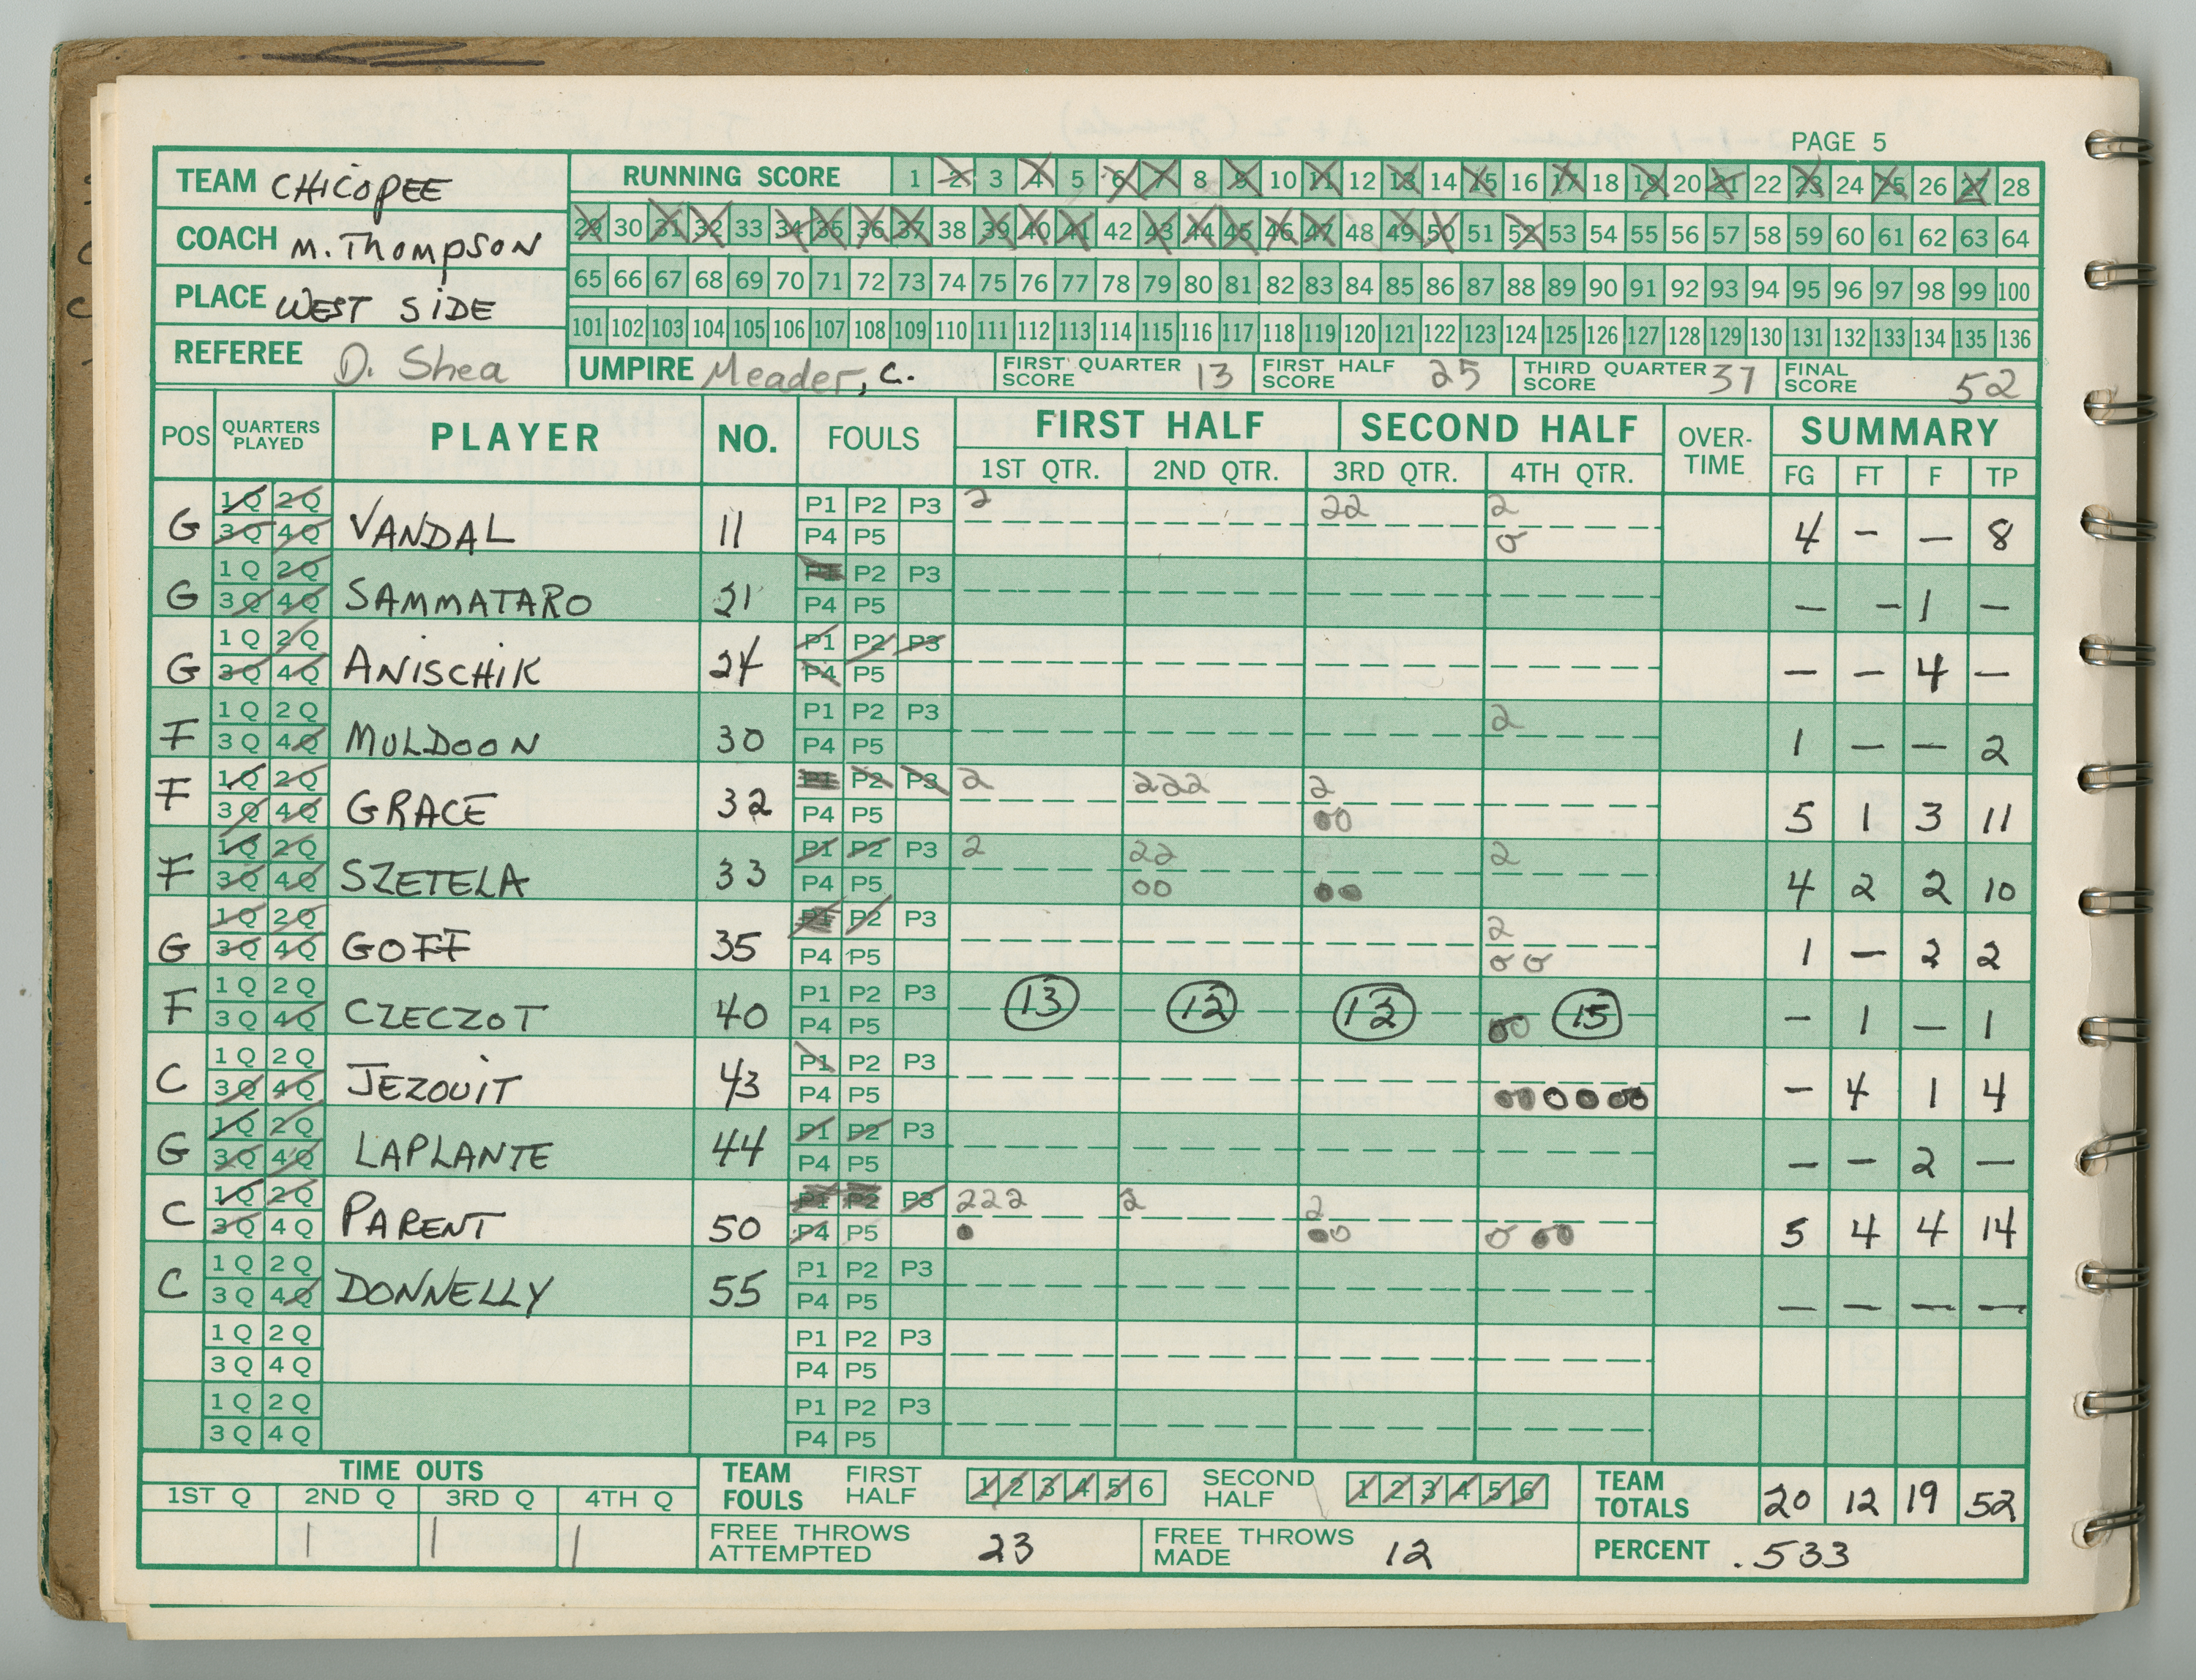 PAGE 5
TEAM CHICOPEE
RUNNING SCORE 1 2 3 4 5 6 7 8 9 10 11 12 13 14 15 16 17 18 19 20 21 22 23 24 25 26 27 28
COACH M. THOMPSON
29 30 31 32 33 34 35 36 37 38 39 40 41 42 43 44 45 46 47 48 49 50 51 52 53 54 55 56 57 58 59 60 61 62 63 64
PLACE WEST SIDE
65 66 67 68 69 70 71 72 73 74 75 76 77 78 79 80 81 82 83 84 85 86 87 88 89 90 91 92 93 94 95 96 97 98 99 100
101 102 103 104 105 106 107 108 109 110 111 112 113 114 115 116 117 118 119 120 121 122 123 124 125 126 127 128 129 130 131 132 133 134 135 136
REFEREE D. Shea
UMPIRE Meader, C.
FIRST QUARTER SCORE 13
FIRST HALF SCORE 25
THIRD QUARTER SCORE 37
FINAL SCORE 52
POS QUARTERS PLAYED PLAYER NO. FOULS FIRST HALF SECOND HALF OVER-TIME SUMMARY
1ST QTR. 2ND QTR. 3RD QTR. 4TH QTR. FG FT F TP
1Q 2Q P1 P2 P3 2 22 2
G 3Q 4Q VANDAL 11 P4 P5 0 4 – – 8
1Q 2Q P1 P2 P3
G 3Q 4Q SAMMATARO 21 P4 P5 – – 1 –
1Q 2Q P1 P2 P3
G 3Q 4Q ANISCHIK 24 P4 P5 – – 4 –
1Q 2Q P1 P2 P3 2
F 3Q 4Q MULDOON 30 P4 P5 1 – – 2
1Q 2Q P1 P2 P3 2 222 2
F 3Q 4Q GRACE 32 P4 P5 00 5 1 3 11
1Q 2Q P1 P2 P3 2 22 2
F 3Q 4Q SZETELA 33 P4 P5 00 ●● 4 2 2 10
1Q 2Q P1 P2 P3 2
G 3Q 4Q GOFF 35 P4 P5 0 0 1 – 2 2
1Q 2Q P1 P2 P3 13 12 12 15
F 3Q 4Q CZECZOT 40 P4 P5 00 – 1 – 1
1Q 2Q P1 P2 P3
C 3Q 4Q JEZOUIT 43 P4 P5 – 4 1 4
1Q 2Q P1 P2 P3
G 3Q 4Q LAPLANTE 44 P4 P5 – – 2 –
1Q 2Q P1 P2 P3 222 2 2
C 3Q 4Q PARENT 50 P4 P5 ● ●0 0 ●● 5 4 4 14
1Q 2Q P1 P2 P3
C 3Q 4Q DONNELLY 55 P4 P5 – – – –
1Q 2Q P1 P2 P3
3Q 4Q P4 P5
1Q 2Q P1 P2 P3
3Q 4Q P4 P5
TIME OUTS
1ST Q 2ND Q 3RD Q 4TH Q
1 1 1
TEAM FOULS FIRST HALF 1 2 3 4 5 6 SECOND HALF 1 2 3 4 5 6
TEAM TOTALS 20 12 19 52
FREE THROWS ATTEMPTED 23
FREE THROWS MADE 12
PERCENT .533